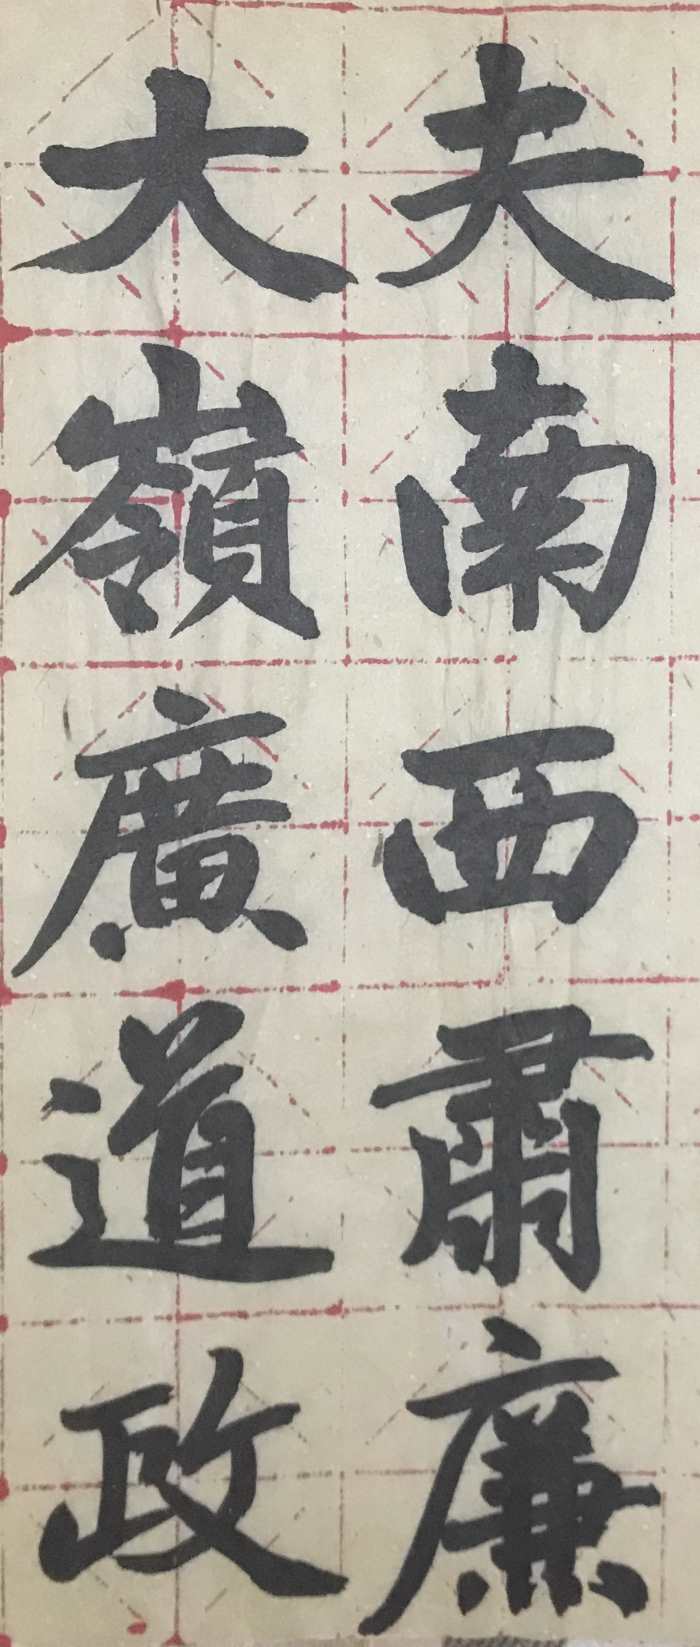 大夫
嶺南
廣西
道肅
政廉